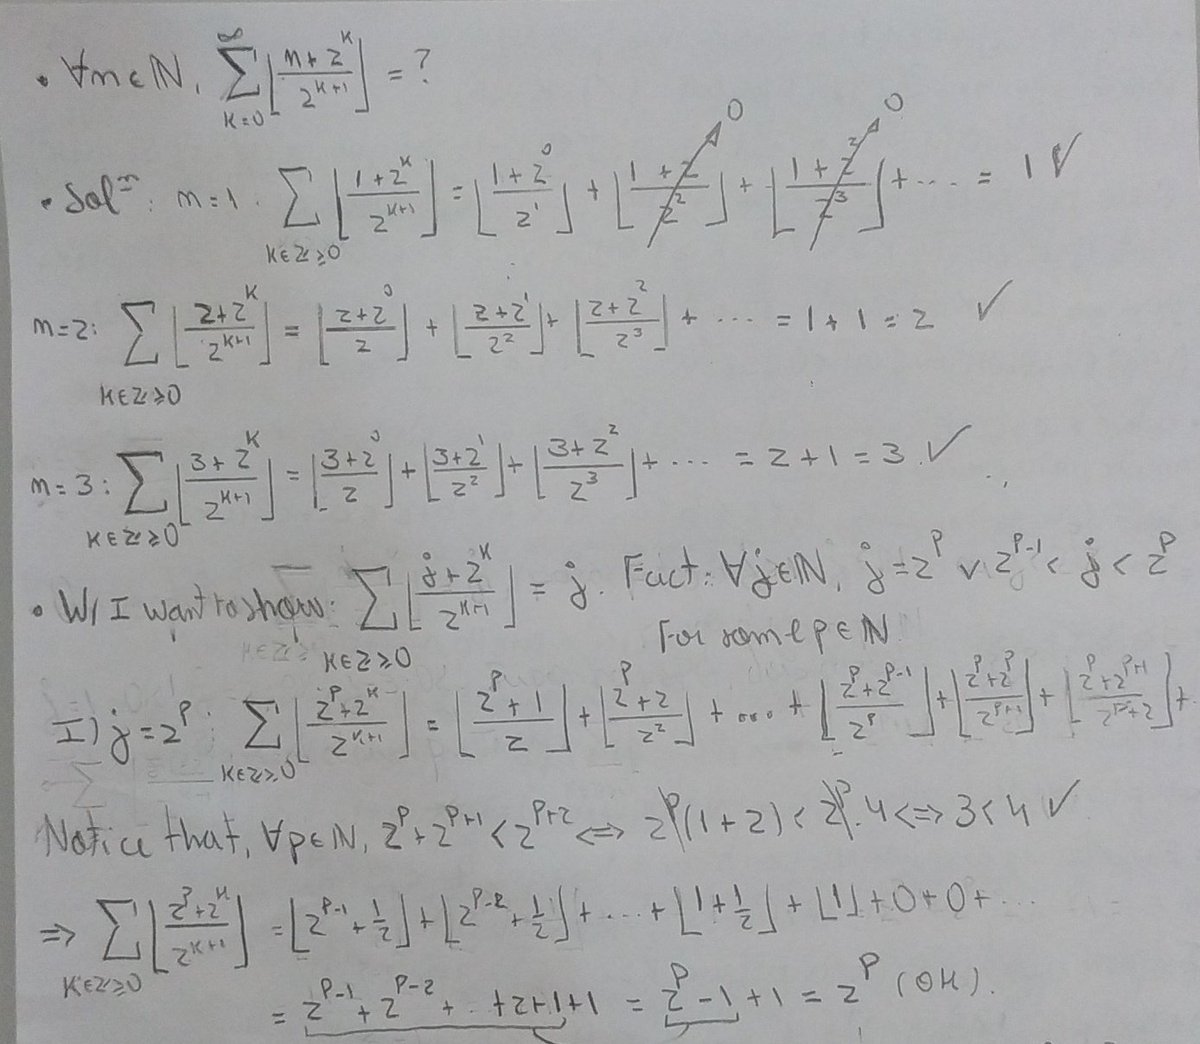 • ∀n∈ℕ, ∑_{k=0}^{∞} ⌊(n+2^k)/2^{k+1}⌋ = ?
• Solⁿ: n=1. ∑_{k∈ℤ≥0} ⌊(1+2^k)/2^{k+1}⌋ = ⌊(1+2^0)/2^1⌋ + ⌊(1+2)/2^2⌋→0 + ⌊(1+2^2)/2^3⌋→0 + ... = 1 ✓
n=2: ∑_{k∈ℤ≥0} ⌊(2+2^k)/2^{k+1}⌋ = ⌊(2+2^0)/2⌋ + ⌊(2+2^1)/2^2⌋ + ⌊(2+2^2)/2^3⌋ + ... = 1+1 = 2 ✓
n=3: ∑_{k∈ℤ≥0} ⌊(3+2^k)/2^{k+1}⌋ = ⌊(3+2^0)/2⌋ + ⌊(3+2^1)/2^2⌋ + ⌊(3+2^2)/2^3⌋ + ... = 2+1 = 3. ✓
• W/ I want to show: ∑_{k∈ℤ≥0} ⌊(j+2^k)/2^{k+1}⌋ = j. Fact: ∀j∈ℕ, j=2^p ∨ 2^{p-1} < j < 2^p
For some p∈ℕ
I) j=2^p: ∑_{k∈ℤ≥0} ⌊(2^p+2^k)/2^{k+1}⌋ = ⌊(2^p+1)/2⌋ + ⌊(2^p+2)/2^2⌋ + ... + ⌊(2^p+2^{p-1})/2^p⌋ + ⌊(2^p+2^p)/2^{p+1}⌋ + ⌊(2^p+2^{p+1})/2^{p+2}⌋ +
Notice that, ∀p∈ℕ, 2^p+2^{p+1} < 2^{p+2} ⟺ 2^p(1+2) < 2^p.4 ⟺ 3<4 ✓
⇒ ∑_{k∈ℤ≥0} ⌊(2^p+2^k)/2^{k+1}⌋ = ⌊2^{p-1}+1/2⌋ + ⌊2^{p-2}+1/2⌋ + ... + ⌊1+1/2⌋ + ⌊1⌋ + 0 + 0 + ...
= 2^{p-1} + 2^{p-2} + ... + 2+1+1 = 2^p-1+1 = 2^p (OK).